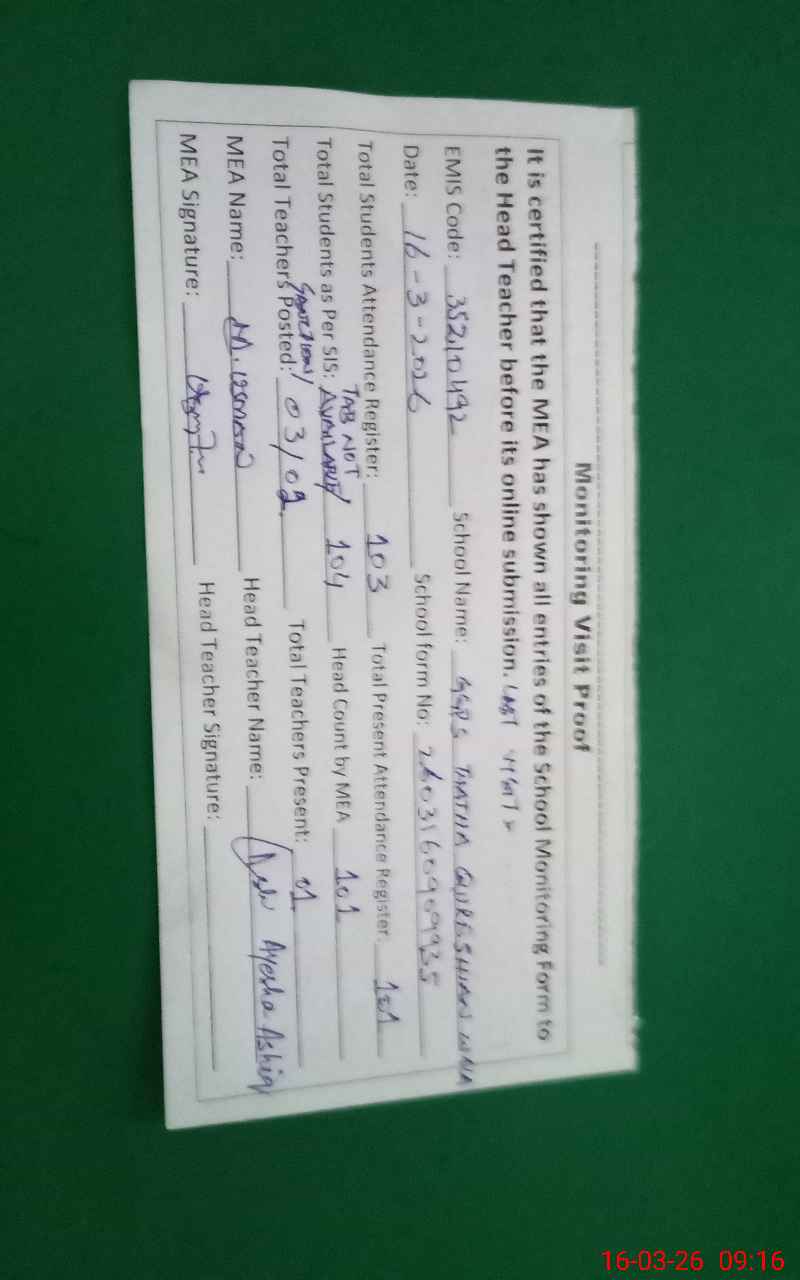 Monitoring Visit Proof
It is certified that the MEA has shown all entries of the School Monitoring Form to
the Head Teacher before its online submission. LAST
EMIS Code: 35210492 School Name: GGPS THATHA QURESHIAN WALA
Date: 16-3-2026 School form No:
Total Students Attendance Register: 103 Total Present Attendance Register: 101
TAB NOT
Total Students as Per SIS: AVAILABLE/ 104 Head Count by MEA 101
SANCTION/
Total Teachers Posted: 03/02. Total Teachers Present: 01
MEA Name: M. USMAN Head Teacher Name: Ayesha Ashiq
MEA Signature: Head Teacher Signature:
16-03-26 09:16